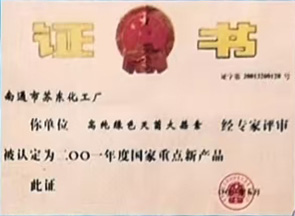 证书
南通市苏东化工厂
你单位 高纯绿色灭菌大蒜素 经专家评审
被认定为二〇〇一年度国家重点新产品
此证